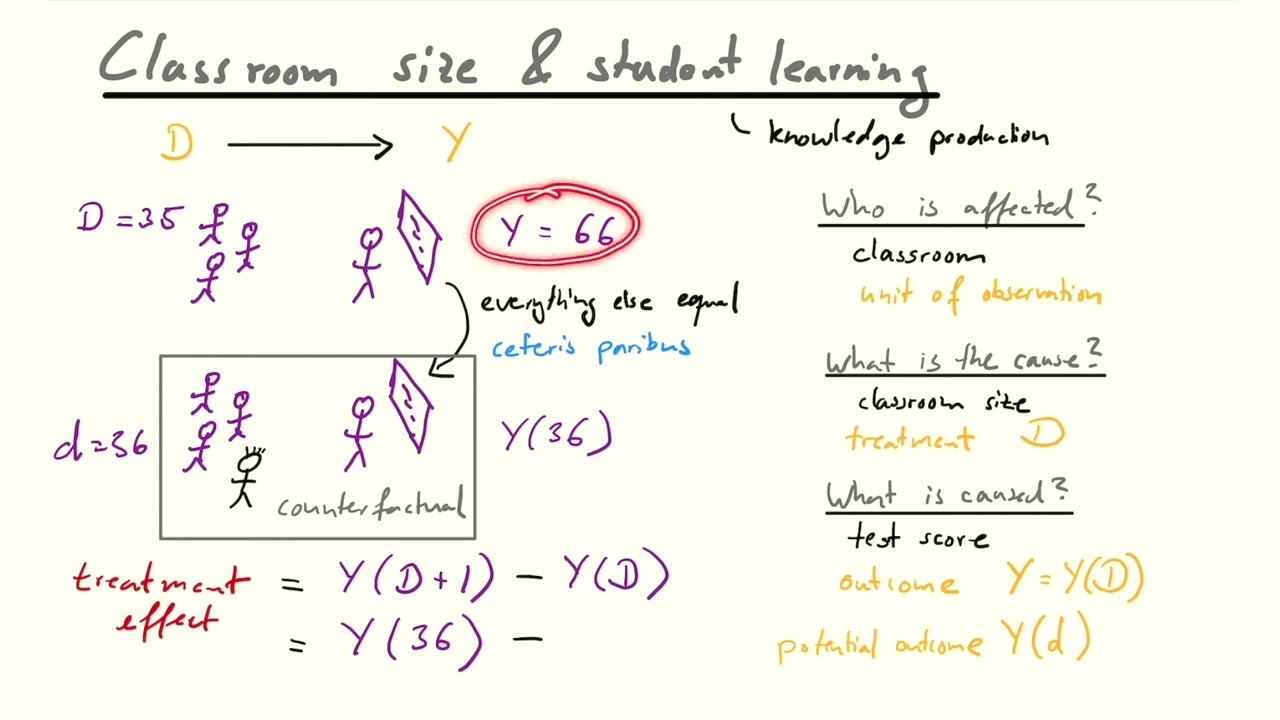 Classroom size & student learning
knowledge production
D → Y
D = 35
Y = 66
everything else equal
ceteris paribus
d = 36
Y(36)
counterfactual
treatment effect = Y(D+1) − Y(D)
= Y(36) −
Who is affected?
classroom
unit of observation
What is the cause?
classroom size
treatment D
What is caused?
test score
outcome Y = Y(D)
potential outcome Y(d)